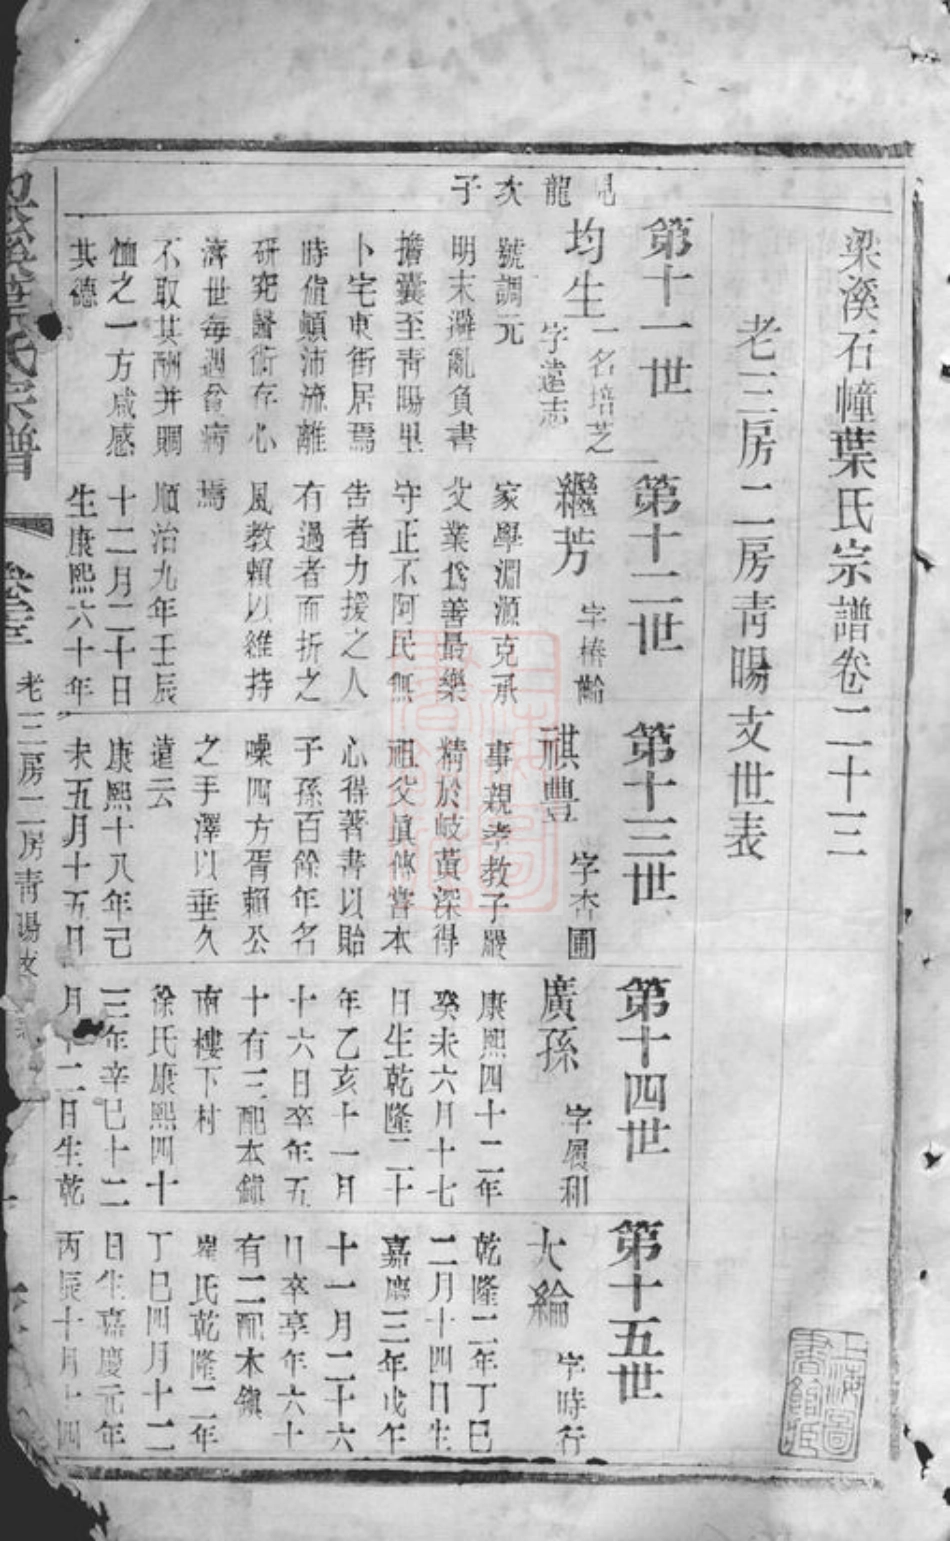 梁溪石幢葉氏宗譜卷二十三
老三房二房青暘支世表
見龍次子
第十一世
均生
一名培芝
字遠志
號調元
明末避亂負書
擔囊至青暘里
卜宅東街居焉
時値顛沛流離
研究醫術存心
濟世每遇貧病
不取其酬并賙
恤之一方咸感
其德
第十二世
繼芳
字椿齡
家學淵源克承
父業爲善最樂
守正不阿民無
告者力援之人
有過者面折之
風教賴以維持
焉
順治九年壬辰
十二月二十日
生康熙六十年
第十三世
祺豊
字杏圃
事親孝教子嚴
精於岐黃深得
祖父眞傳嘗本
心得著書以貽
子孫百餘年名
噪四方胥賴公
之手澤以垂久
遠云
康熙十八年己
未五月十五日
第十四世
廣孫
字履和
康熙四十二年
癸未六月十七
日生乾隆二十
年乙亥十一月
十六日卒年五
十有三配本鎭
南樓下村
徐氏康熙四十
三年辛巳十二
月十二日生乾
第十五世
大綸
字時行
乾隆二年丁巳
二月十四日生
嘉慶三年戊午
十一月二十六
日卒享年六十
有二配本鎭
氏乾隆二年
丁巳四月十二
日生嘉慶元年
丙辰十月十四
梁溪葉氏宗譜
卷二十三
老三房二房青暘支
上海圖書館藏